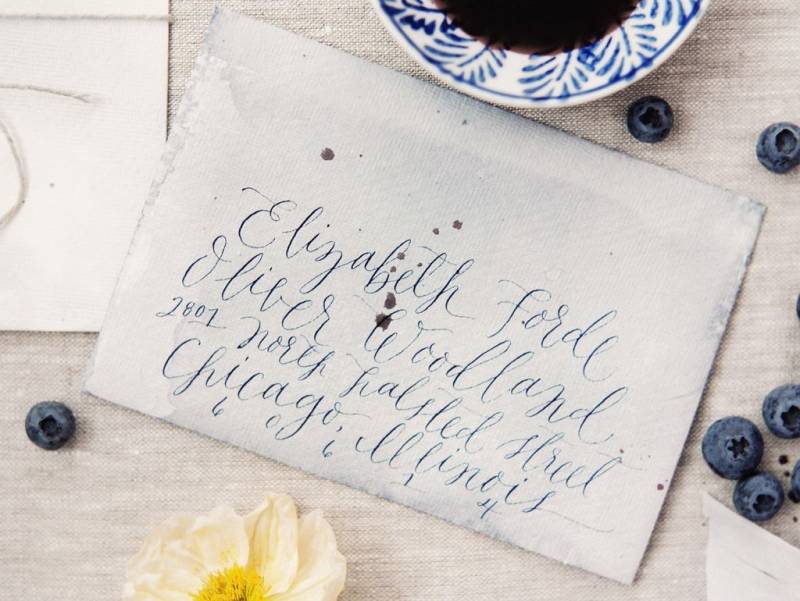 Elizabeth Forde
Oliver Woodland
2801 North Halsted Street
Chicago, Illinois
6 0 6 1 4